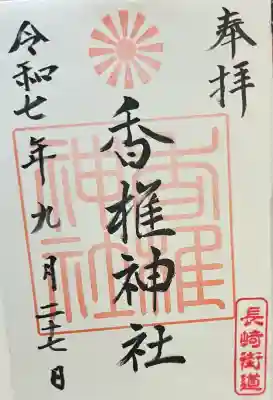 奉拝
香椎神社
香椎
神社
長崎街道
令和七年九月二十七日